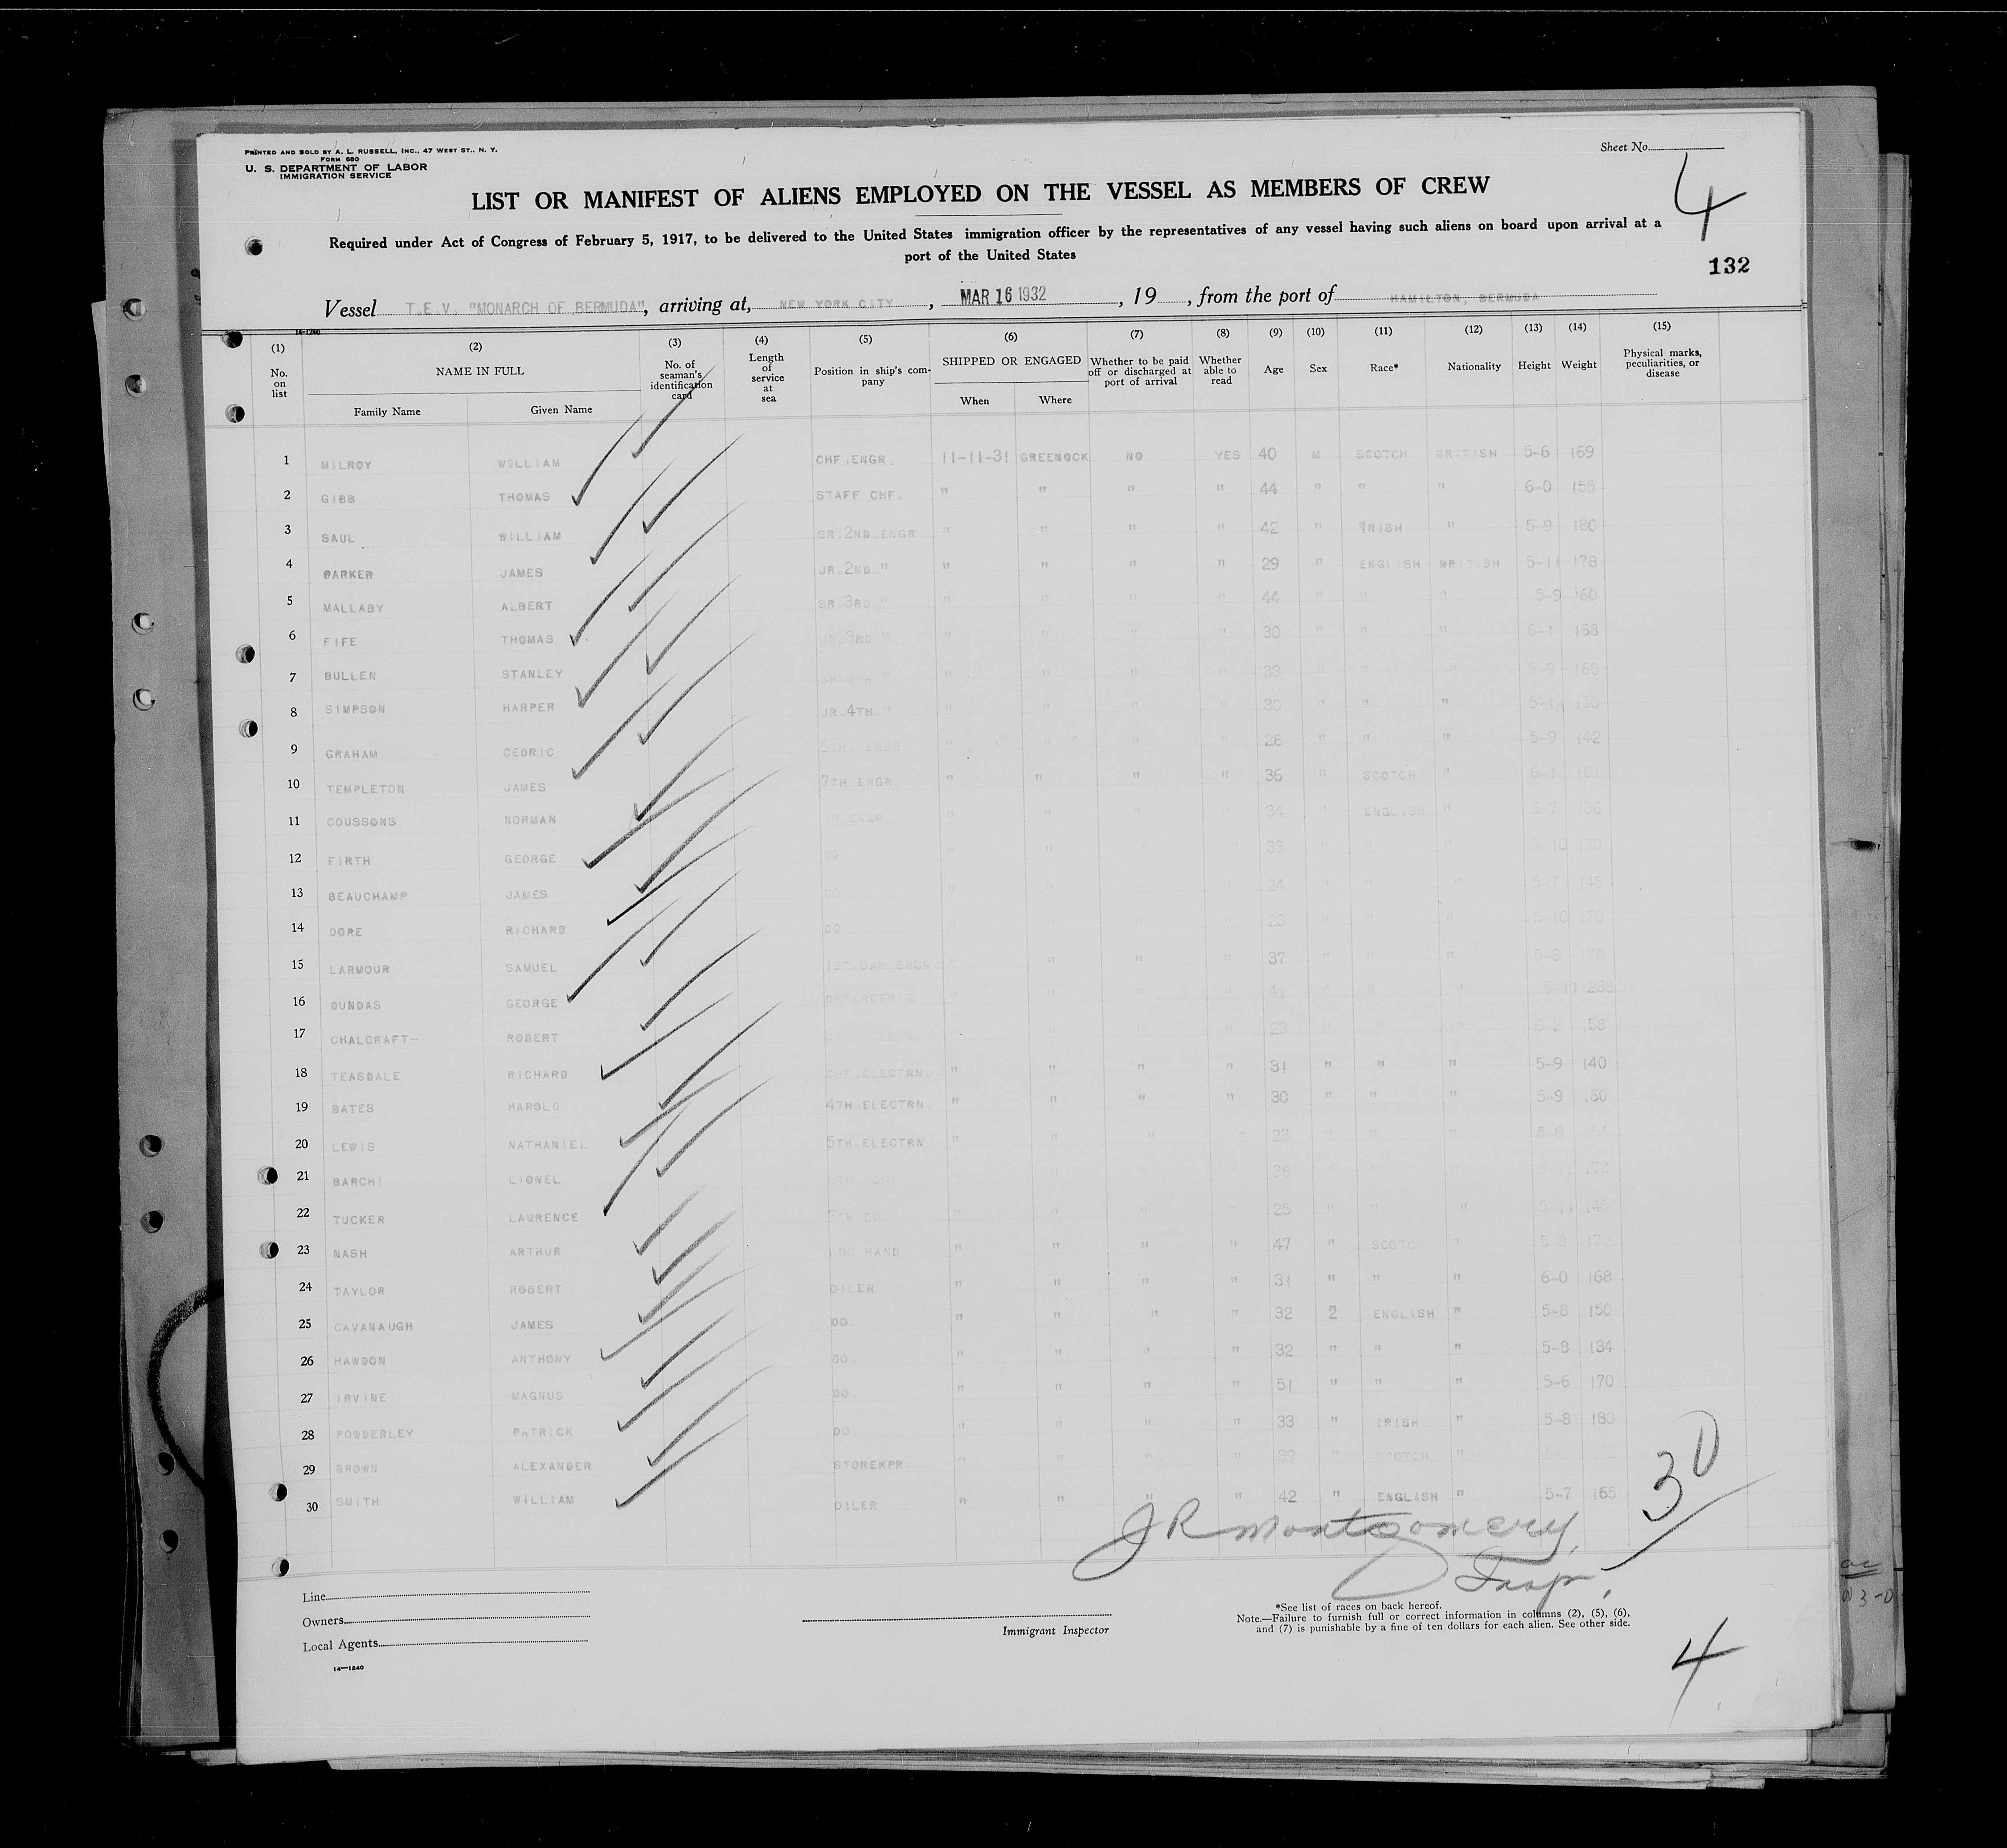 PRINTED AND SOLD BY A. L. RUSSELL, INC., 47 WEST ST., N. Y.
FORM 680
U. S. DEPARTMENT OF LABOR
IMMIGRATION SERVICE
Sheet No.
4
LIST OR MANIFEST OF ALIENS EMPLOYED ON THE VESSEL AS MEMBERS OF CREW
Required under Act of Congress of February 5, 1917, to be delivered to the United States immigration officer by the representatives of any vessel having such aliens on board upon arrival at a
port of the United States
132
Vessel T.E.V. "MONARCH OF BERMUDA", arriving at, NEW YORK CITY, MAR 16 1932, 19 , from the port of HAMILTON, BERMUDA
14-1240
(1) (2) (3) (4) (5) (6) (7) (8) (9) (10) (11) (12) (13) (14) (15)
No. on list NAME IN FULL No. of seaman's identification card Length of service at sea Position in ship's company SHIPPED OR ENGAGED Whether to be paid off or discharged at port of arrival Whether able to read Age Sex Race* Nationality Height Weight Physical marks, peculiarities, or disease
Family Name Given Name When Where
1 MILROY WILLIAM CHF.ENGR. 11-11-31 GREENOCK NO YES 40 M SCOTCH BRITISH 5-6 169
2 GIBB THOMAS STAFF CHF. " " " " 44 " " " 6-0 158
3 SAUL WILLIAM SR.2ND.ENGR " " " " 42 " IRISH " 5-9 180
4 BARKER JAMES JR.2ND." " " " " 29 " ENGLISH BRITISH 5-11 178
5 MALLABY ALBERT SR.3RD." " " " " 44 " " " 5-9 160
6 FIFE THOMAS JR.3RD." " " " " 30 " " " 6-1 168
7 BULLEN STANLEY " " " " 33 " " " 5-9 160
8 SIMPSON HARPER JR.4TH " " " " " 30 " " "
9 GRAHAM CEDRIC 5TH.ENGR. " " " " 28 " " " 5-9 142
10 TEMPLETON JAMES 7TH.ENGR. " " " " 36 " SCOTCH " 6-1
11 COUSSONS NORMAN JR.ENGR. " " " " 34 " ENGLISH " 5-7 136
12 FIRTH GEORGE DO. " " " " 33 " " " 5-10 170
13 BEAUCHAMP JAMES DO. " " " " 24 " " " 5-7 145
14 DORE RICHARD DO. 23 5-10 170
15 LARMOUR SAMUEL 1ST.SAN.ENGR " " " " 37 " " " 5-8 170
16 DUNDAS GEORGE 41
17 CHALCRAFT- ROBERT 23 6-2 158
18 TEASDALE RICHARD CHF.ELECTRN. " " " " 31 " " " 5-9 140
19 BATES HAROLD 4TH.ELECTRN. " " " " 30 " " " 5-9 160
20 LEWIS NATHANIEL 5TH.ELECTRN " " " " 23 " " "
21 BARCHI LIONEL 38
22 TUCKER LAWRENCE 7TH.DO. " " " " 25 " " " 5-11 146
23 NASH ARTHUR LDG.HAND " " " " 47 " SCOTCH " 5-8 172
24 TAYLOR ROBERT OILER " " " " 31 " " " 6-0 168
25 CAVANAUGH JAMES DO. " " " " 32 2 ENGLISH " 5-8 150
26 HAWDON ANTHONY DO. " " " " 32 " " " 5-8 134
27 IRVINE MAGNUS DO. " " " " 51 " " " 5-6 170
28 POWDERLEY PATRICK DO. " " " " 33 " IRISH " 5-8 180
29 BROWN ALEXANDER STOREKPR " " " " 39 " SCOTCH "
30 SMITH WILLIAM OILER " " " " 42 " ENGLISH " 5-7 166
30
J R Montgomery
Insp.
Line
Owners
Local Agents
Immigrant Inspector
*See list of races on back hereof.
Note.—Failure to furnish full or correct information in columns (2), (5), (6),
and (7) is punishable by a fine of ten dollars for each alien. See other side.
14—1240
4